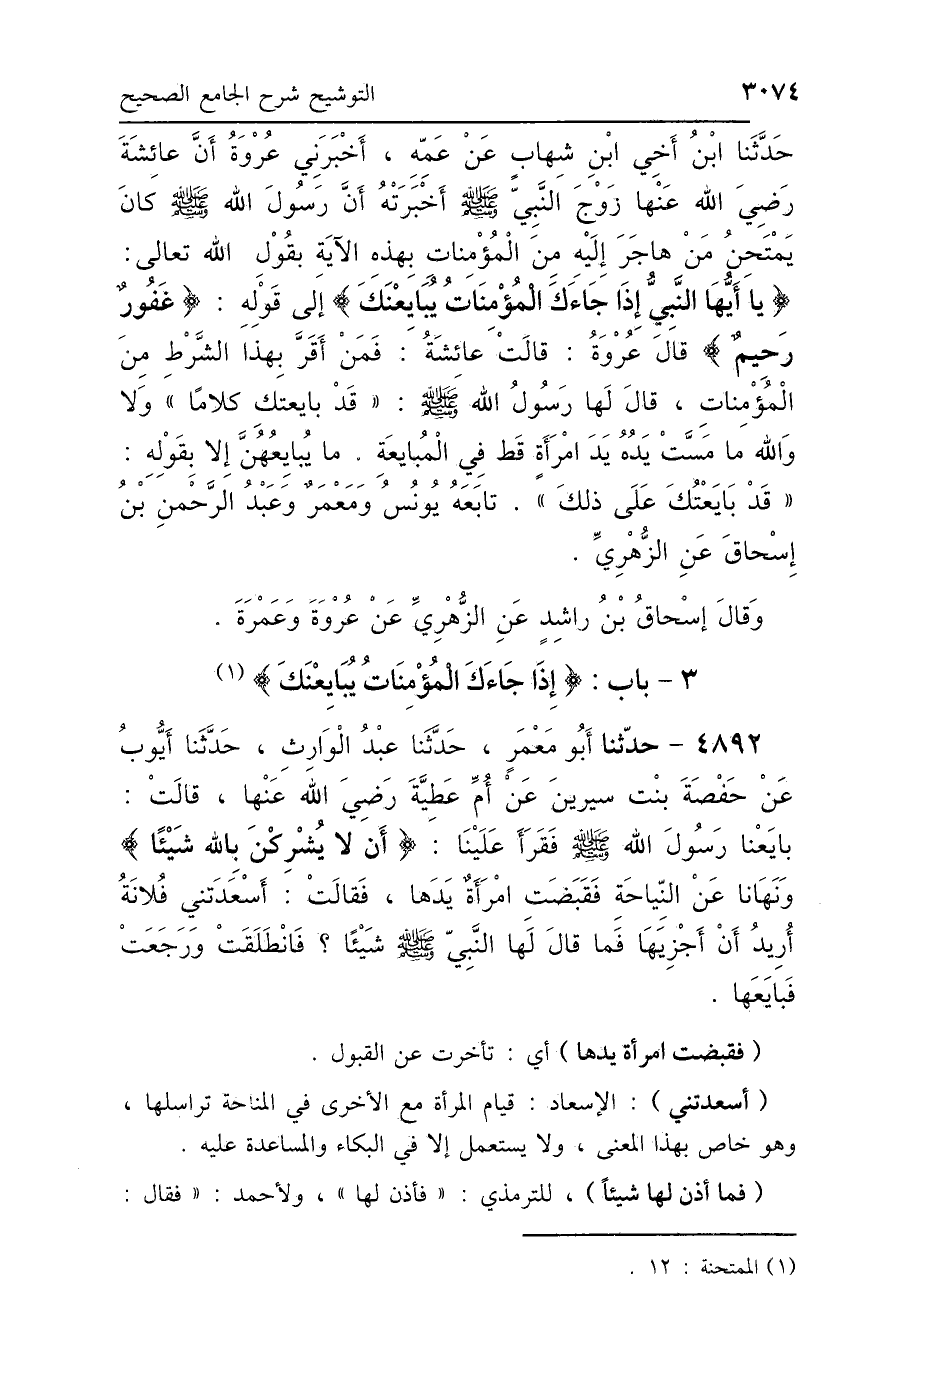 ٣٠٧٤ التوشيح شرح الجامع الصحيح
حَدَّثَنا ابْنُ أَخِي ابْنِ شِهابٍ عَنْ عَمِّهِ ، أَخْبَرَنِي عُرْوَةُ أَنَّ عائِشَةَ
رَضِيَ الله عَنْها زَوْجَ النَّبِيِّ ﷺ أَخْبَرَتْهُ أَنَّ رَسُولَ الله ﷺ كانَ
يَمْتَحِنُ مَنْ هاجَرَ إِلَيْهِ مِنَ الْمُؤْمِناتِ بِهذِهِ الآيَةِ بِقُوْلِ الله تعالى :
﴿ يا أَيُّهَا النَّبِيُّ إِذَا جَاءَكَ الْمُؤْمِنَاتُ يُبَايِعْنَكَ ﴾ إلى قَوْلِهِ : ﴿ غَفُورٌ
رَحِيمٌ ﴾ قالَ عُرْوَةُ : قالَتْ عائِشَةُ : فَمَنْ أَقَرَّ بِهذا الشَّرْطِ مِنَ
الْمُؤْمِناتِ ، قالَ لَها رَسُولُ الله ﷺ : « قَدْ بايعتك كلامًا » وَلا
وَالله ما مَسَّتْ يَدُهُ يَدَ امْرَأَةٍ قط فِي الْمُبايَعَةِ . ما يُبايِعُهُنَّ إلا بِقَوْلِهِ :
« قَدْ بَايَعْتُكَ عَلَى ذلكَ » . تابَعَهُ يُونُسُ وَمَعْمَرٌ وَعَبْدُ الرَّحْمنِ بْنُ
إِسْحاقَ عَنِ الزُّهْرِيِّ .
وَقالَ إسْحاقُ بْنُ راشِدٍ عَنِ الزُّهْرِيِّ عَنْ عُرْوَةَ وَعَمْرَةَ .
٣ - باب : ﴿ إِذَا جَاءَكَ الْمُؤْمِنَاتُ يُبَايِعْنَكَ ﴾ (١)
٤٨٩٢ - حدّثنا أَبُو مَعْمَرٍ ، حَدَّثَنا عبْدُ الْوَارِثِ ، حَدَّثَنا أَيُّوبُ
عَنْ حَفْصَةَ بِنْتِ سيرينَ عَنْ أُمِّ عَطِيَّةَ رَضِيَ الله عَنْها ، قالَتْ :
بايَعْنا رَسُولَ الله ﷺ فَقَرَأَ عَلَيْنَا : ﴿ أَن لا يُشْرِكْنَ بِالله شَيْئًا ﴾
وَنَهَانا عَنْ النِّياحَةِ فَقَبَضَتِ امْرَأَةٌ يَدَها ، فَقالَتْ : أَسْعَدَتني فُلانَةُ
أُرِيدُ أَنْ أَجْزِيَهَا فَما قالَ لَها النَّبِيّ ﷺ شَيْئًا ؟ فَانْطَلَقَتْ وَرَجَعَتْ
فَبايَعَها .
( فقبضت امرأة يدها ) أي : تأخرت عن القبول .
( أسعدتني ) : الإسعاد : قيام المرأة مع الأخرى في المناحة تراسلها ،
وهو خاص بهذا المعنى ، ولا يستعمل إلا في البكاء والمساعدة عليه .
( فما أذن لها شيئاً ) ، للترمذي : « فأذن لها » ، ولأحمد : « فقال :
(١) الممتحنة : ١٢ .